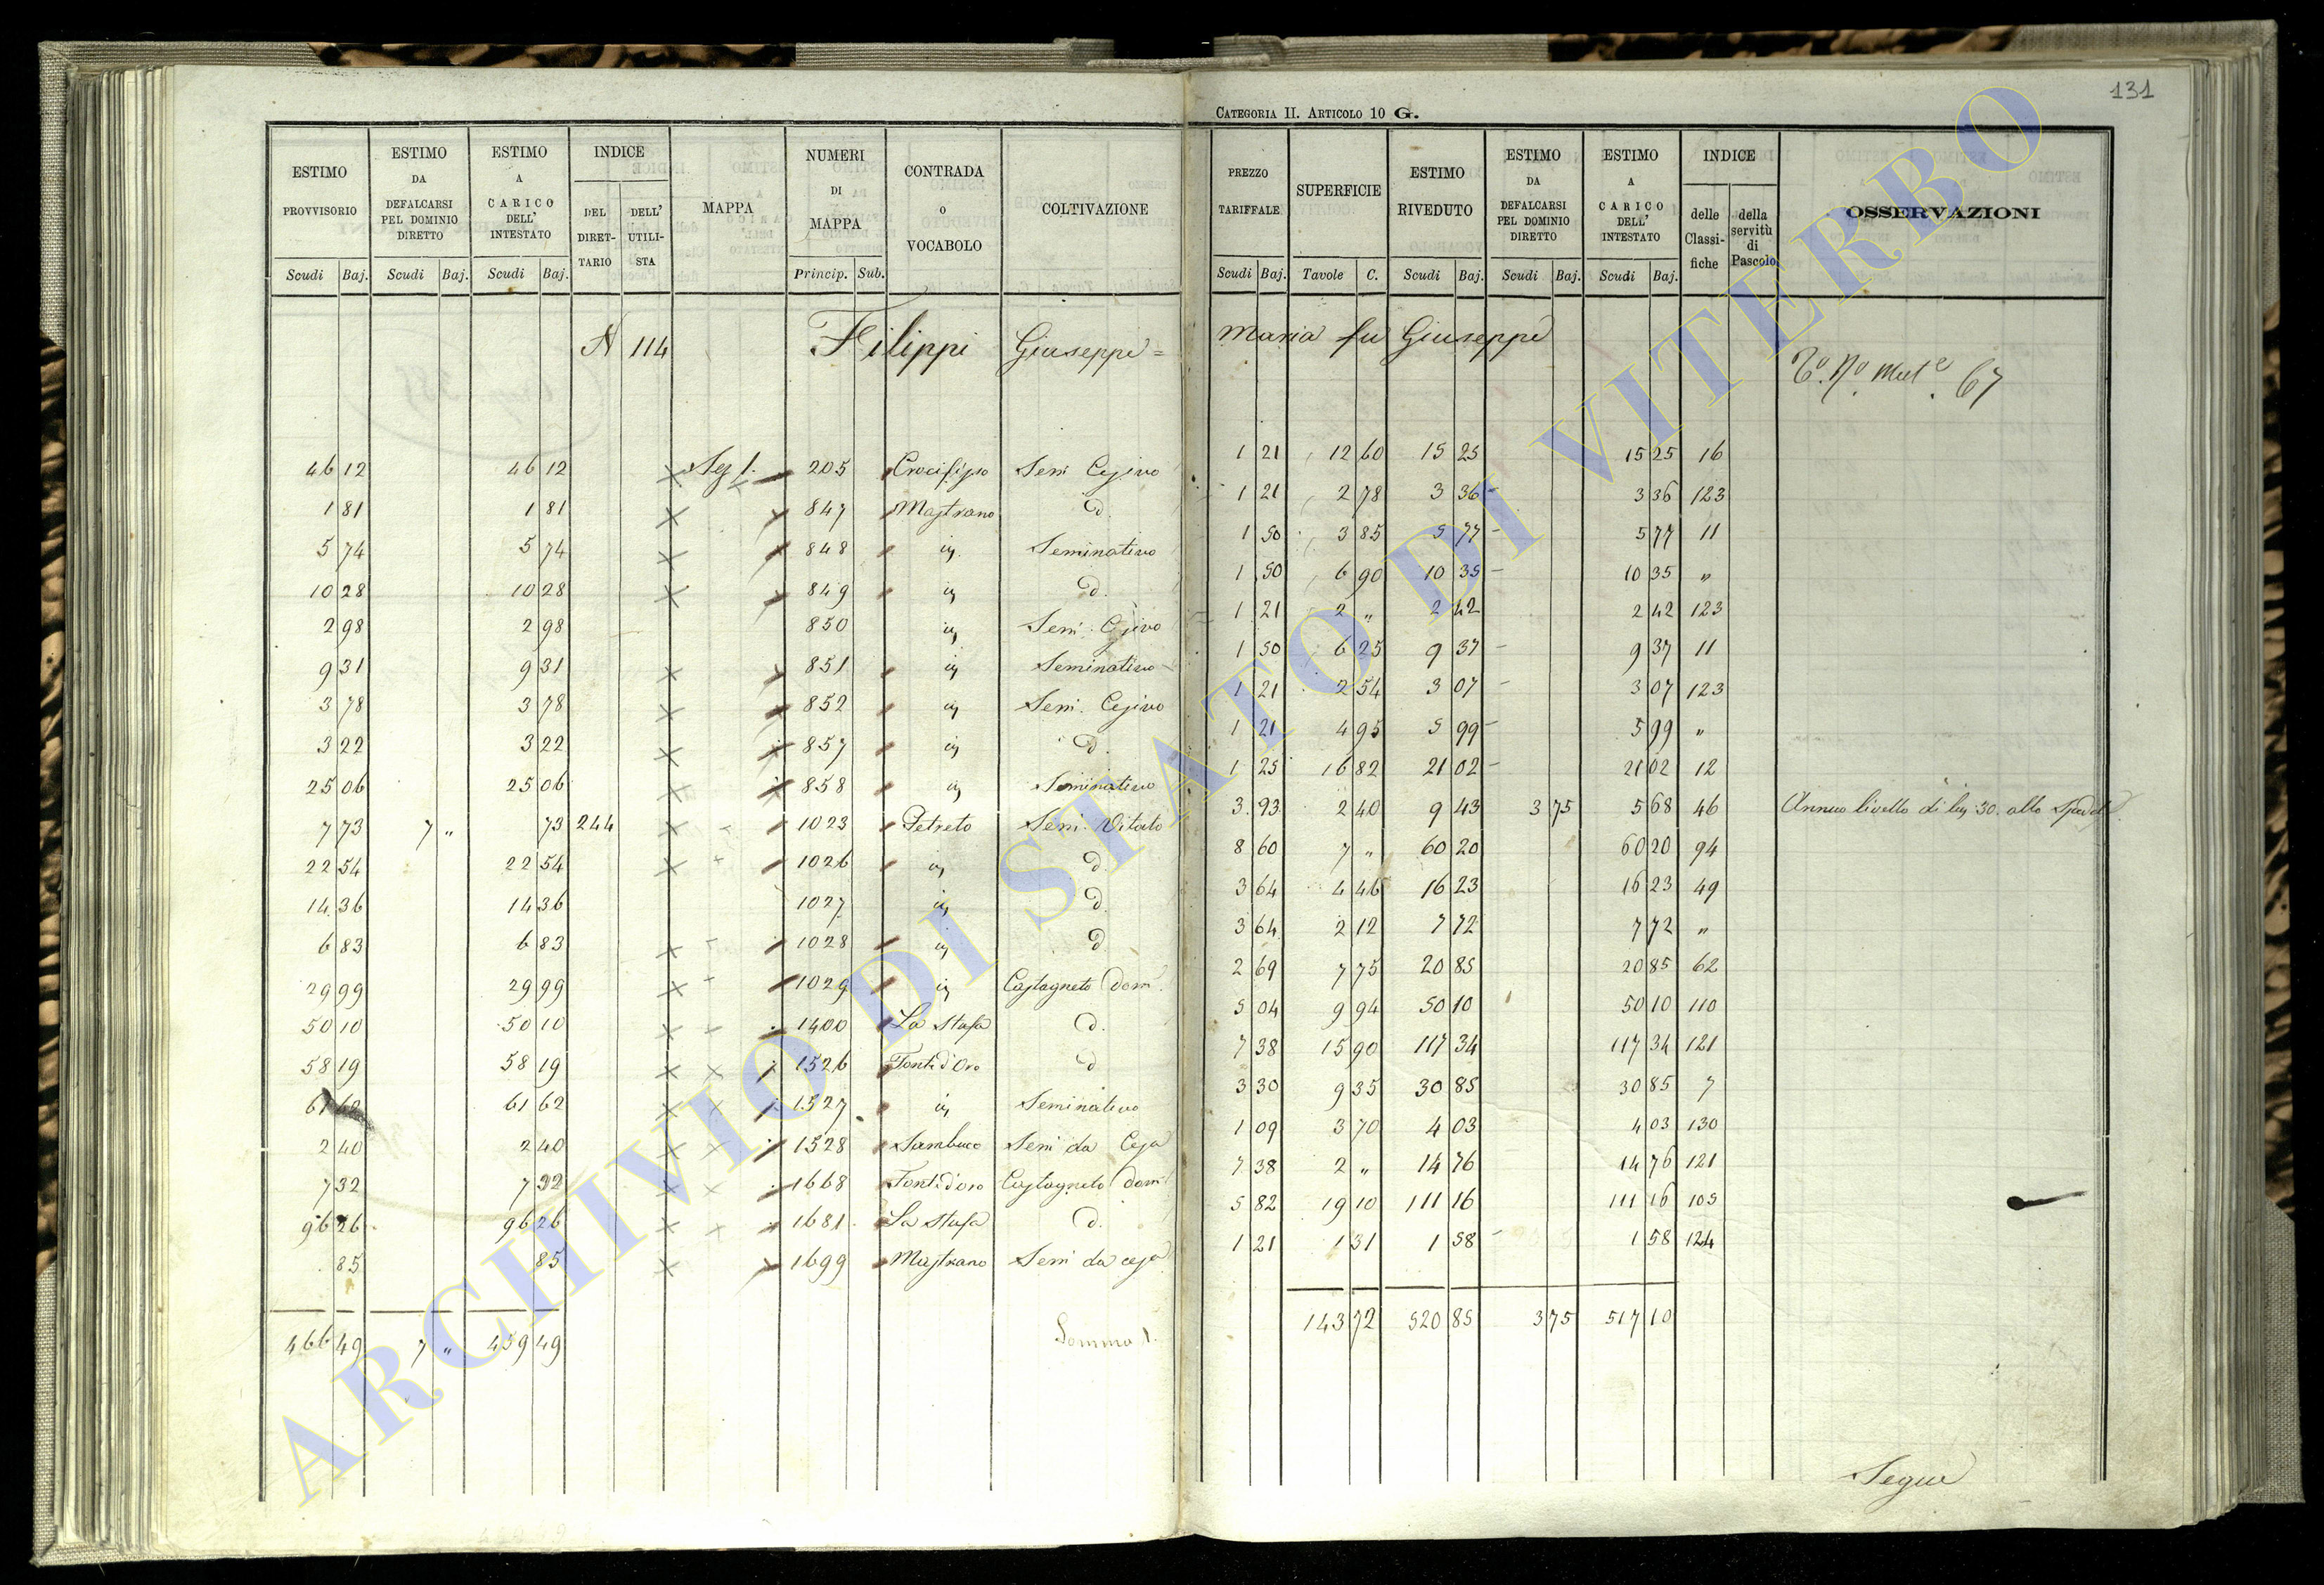 131
CATEGORIA II. ARTICOLO 10 G.
ESTIMO PROVVISORIO | ESTIMO DA DEFALCARSI PEL DOMINIO DIRETTO | ESTIMO A CARICO DELL' INTESTATO | INDICE DEL DIRETTARIO | DELL' UTILISTA | MAPPA | NUMERI DI MAPPA | CONTRADA O VOCABOLO | COLTIVAZIONE | PREZZO TARIFFALE | SUPERFICIE | ESTIMO RIVEDUTO | ESTIMO DA DEFALCARSI PEL DOMINIO DIRETTO | ESTIMO A CARICO DELL' INTESTATO | INDICE delle Classifiche | della servitù di Pascolo | OSSERVAZIONI
Scudi Baj. | Scudi Baj. | Scudi Baj. | Princip. Sub. | Scudi Baj. | Tavole C. | Scudi Baj. | Scudi Baj. | Scudi Baj.
114 Filippi Giuseppe = Maria fu Giuseppe
67
46 12 | 46 12 | Sez 1. | 205 | Crocifisso | Semi Cesivo | 1 21 | 12 60 | 15 25 | 15 25 | 16
1 81 | 1 81 | 847 | Mastrano | d. | 1 21 | 2 78 | 3 36 | 3 36 | 123
5 74 | 5 74 | 848 | Seminativo | 1 50 | 3 85 | 5 77 | 5 77 | 11
10 28 | 10 28 | 849 | d. | 1 50 | 6 90 | 10 35 | 10 35 | "
2 98 | 2 98 | 850 | Semi. Cesivo | 1 21 | 2 " | 2 42 | 2 42 | 123
9 31 | 9 31 | 851 | Seminativo | 1 50 | 6 25 | 9 37 | 9 37 | 11
3 78 | 3 78 | 852 | Semi. Cesivo | 1 21 | 2 54 | 3 07 | 3 07 | 123
3 22 | 3 22 | 857 | d. | 1 21 | 4 95 | 5 99 | 5 99 | "
25 06 | 25 06 | 858 | Seminativo | 1 25 | 16 82 | 21 02 | 21 02 | 12
7 73 | 7 " | 73 | 244 | 1023 | Petreto | Semi. Vitato | 3 93 | 2 40 | 9 43 | 3 75 | 5 68 | 46 | Annuo livello di 30. allo
22 54 | 22 54 | 1026 | d. | 8 60 | 7 " | 60 20 | 60 20 | 94
14 36 | 14 36 | 1027 | d. | 3 64 | 4 46 | 16 23 | 16 23 | 49
6 83 | 6 83 | 1028 | d. | 3 64 | 2 12 | 7 72 | 7 72 | "
29 99 | 29 99 | 1029 | Castagneto dom. | 2 69 | 7 75 | 20 85 | 20 85 | 62
50 10 | 50 10 | 1400 | La Stufa | d. | 5 04 | 9 94 | 50 10 | 50 10 | 110
58 19 | 58 19 | 1526 | Fonti d'Oro | d | 7 38 | 15 90 | 117 34 | 117 34 | 121
61 62 | 61 62 | 1527 | Seminativo | 3 30 | 9 35 | 30 85 | 30 85 | 7
2 40 | 2 40 | 1528 | Sambuco | Semi da Cesa | 1 09 | 3 70 | 4 03 | 4 03 | 130
7 32 | 7 32 | 1668 | Fonti d'oro | Castagneto dom. | 7 38 | 2 " | 14 76 | 14 76 | 121
96 26 | 96 26 | 1681 | La Stufa | d. | 5 82 | 19 10 | 111 16 | 111 16 | 105
85 | 85 | 1699 | Mastrano | Semi da cesa | 1 21 | 1 31 | 1 58 | 1 58 | 124
466 49 | 7 " | 459 49 | Somma 1. | 143 72 | 520 85 | 3 75 | 517 10
Segue
ARCHIVIO DI STATO DI VITERBO